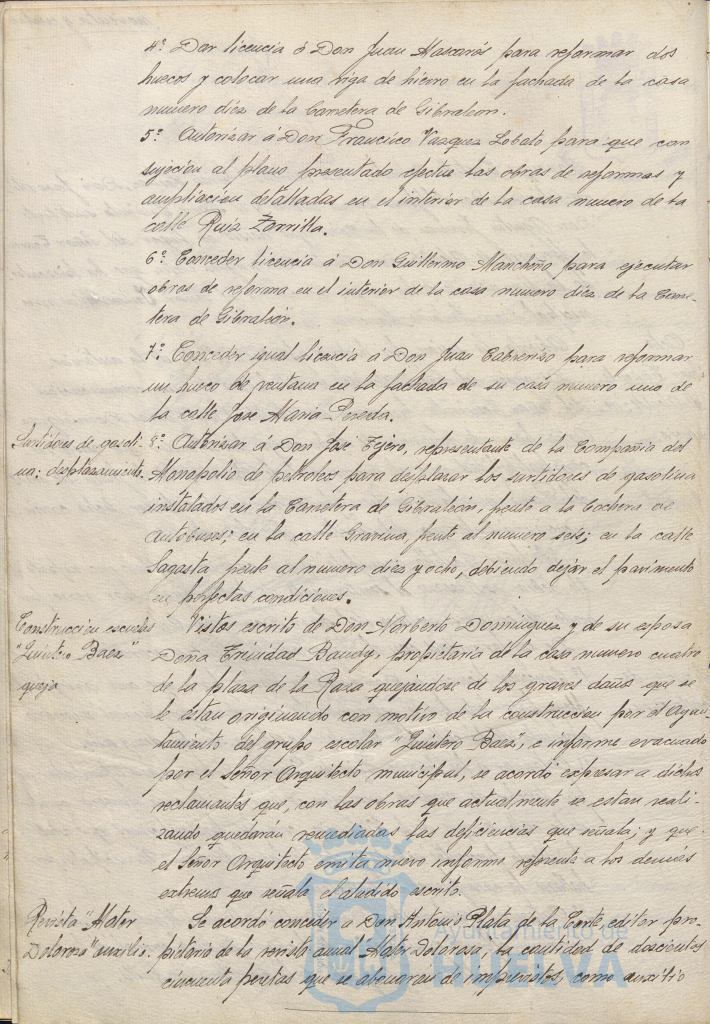 4º Dar licencia á Don Juan Mascarós para reformar dos
huecos y colocar una viga de hierro en la fachada de la casa
numero diez de la Carretera de Gibraleon.
5º Autorizar á Don Francisco Vazquez Lobato para que con
sujecion al plano presentado efectue las obras de reformas y
ampliacion detalladas en el interior de la casa numero de la
calle Ruiz Zorrilla.
6º Conceder licencia á Don Guillermo Mancheño para ejecutar
obras de reforma en el interior de la casa numero diez de la Carre-
tera de Gibraleón.
7º Conceder igual licencia á Don Juan para reformar
un hueco de ventana en la fachada de su casa numero uno de
la calle Jose Maria Pereda.
Surtidores de gasoli-
na: desplazamiento.
8º Autorizar á Don José Tejero, representante de la Compañia del
Monopolio de petroleos para desplazar los surtidores de gasolina
instalados en la Carretera de Gibraleón, frente a la Cochera de
autobuses; en la calle Gravina, frente al numero seis; en la calle
Sagasta frente al numero diez y ocho, debiendo dejar el pavimento
en perfectas condiciones.
Construccion escuelas
"Quintero Baez"
queja
Vistos escrito de Don Norberto Dominguez y de su esposa
Doña Trinidad, propietaria de la casa numero cuatro
de la plaza de la Raza quejandose de los graves daños que se
le estan originando con motivo de la construccion por el Ayun-
tamiento del grupo escolar "Quintero Baez", e informe evacuado
por el Señor Arquitecto municipal, se acordó expresar a dichos
reclamantes que, con las obras que actualmente se estan reali-
zando quedarán remediadas las deficiencias que señala; y que
el Señor Arquitecto emita nuevo informe referente a los demás
extremos que señala el aludido escrito.
Revista "Mater
Dolorosa" auxilio.
Se acordó conceder a Don Antonio Plata de la Corte editor pro-
pietario de la revista anual Mater Dolorosa, la cantidad de doscientas
cincuenta pesetas que se abonaran de imprevistos, como auxilio
Ayuntamiento de
HUELVA